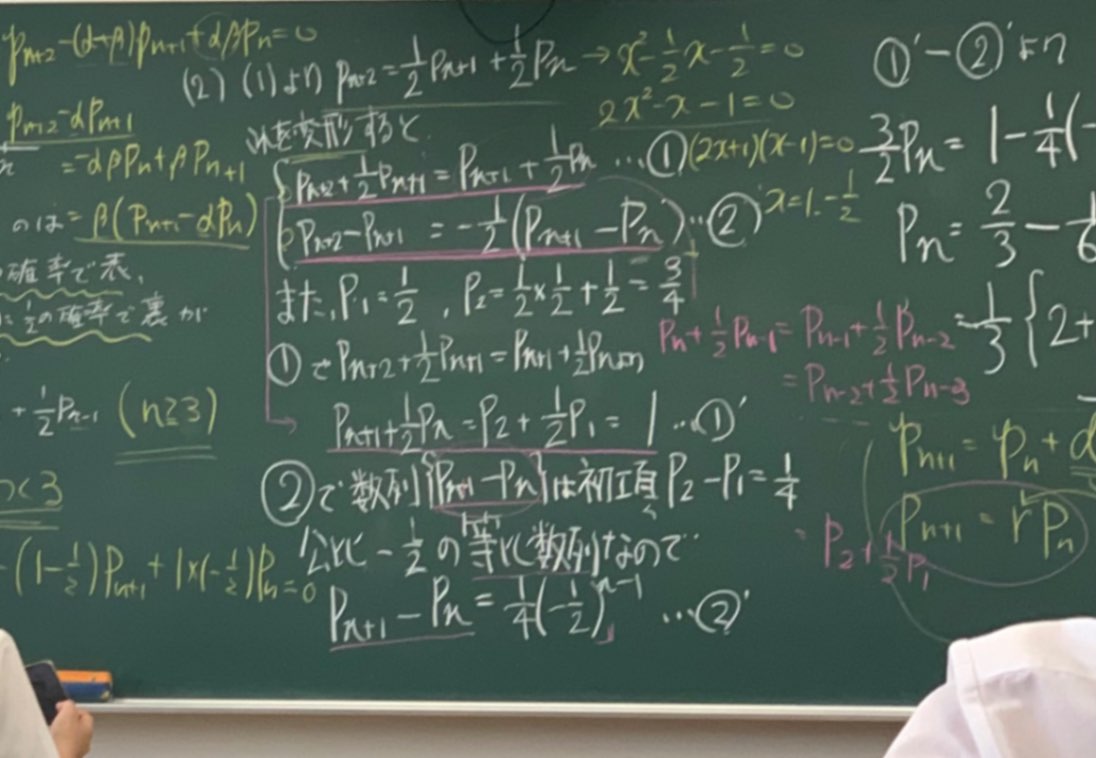 Pn+2-(α+β)Pn+1+αβPn=0
Pn+2-αPn+1
=-αβPn+βPn+1
のは=β(Pn+1-αPn)
確率で表、
1/2の確率で裏が
+1/2Pn-1 (n≧3)
<3
(1-1/2)Pn+1+1×(-1/2)Pn=0
(2) (1)より Pn+2=1/2Pn+1+1/2Pn→x²-1/2x-1/2=0
2x²-x-1=0
(2x+1)(x-1)=0
x=1.-1/2
を変形すると
Pn+2+1/2Pn+1=Pn+1+1/2Pn …①
Pn+2-Pn+1=-1/2(Pn+1-Pn)…②
また、P1=1/2, P2=1/2×1/2+1/2=3/4
①で Pn+2+1/2Pn+1=Pn+1+1/2Pn
Pn+1+1/2Pn=P2+1/2P1=1…①'
②で数列{Pn+1-Pn}は初項P2-P1=1/4
公比-1/2の等比数列なので
Pn+1-Pn=1/4(-1/2)^n-1 …②'
Pn+1/2Pn-1=Pn-1+1/2Pn-2
=Pn-2+1/2Pn-3
=P2+1/2P1
①'-②'より
3/2Pn=1-1/4(-
Pn=2/3-1/6
=1/3{2+
Pn+1=Pn+d
Pn+1=rPn